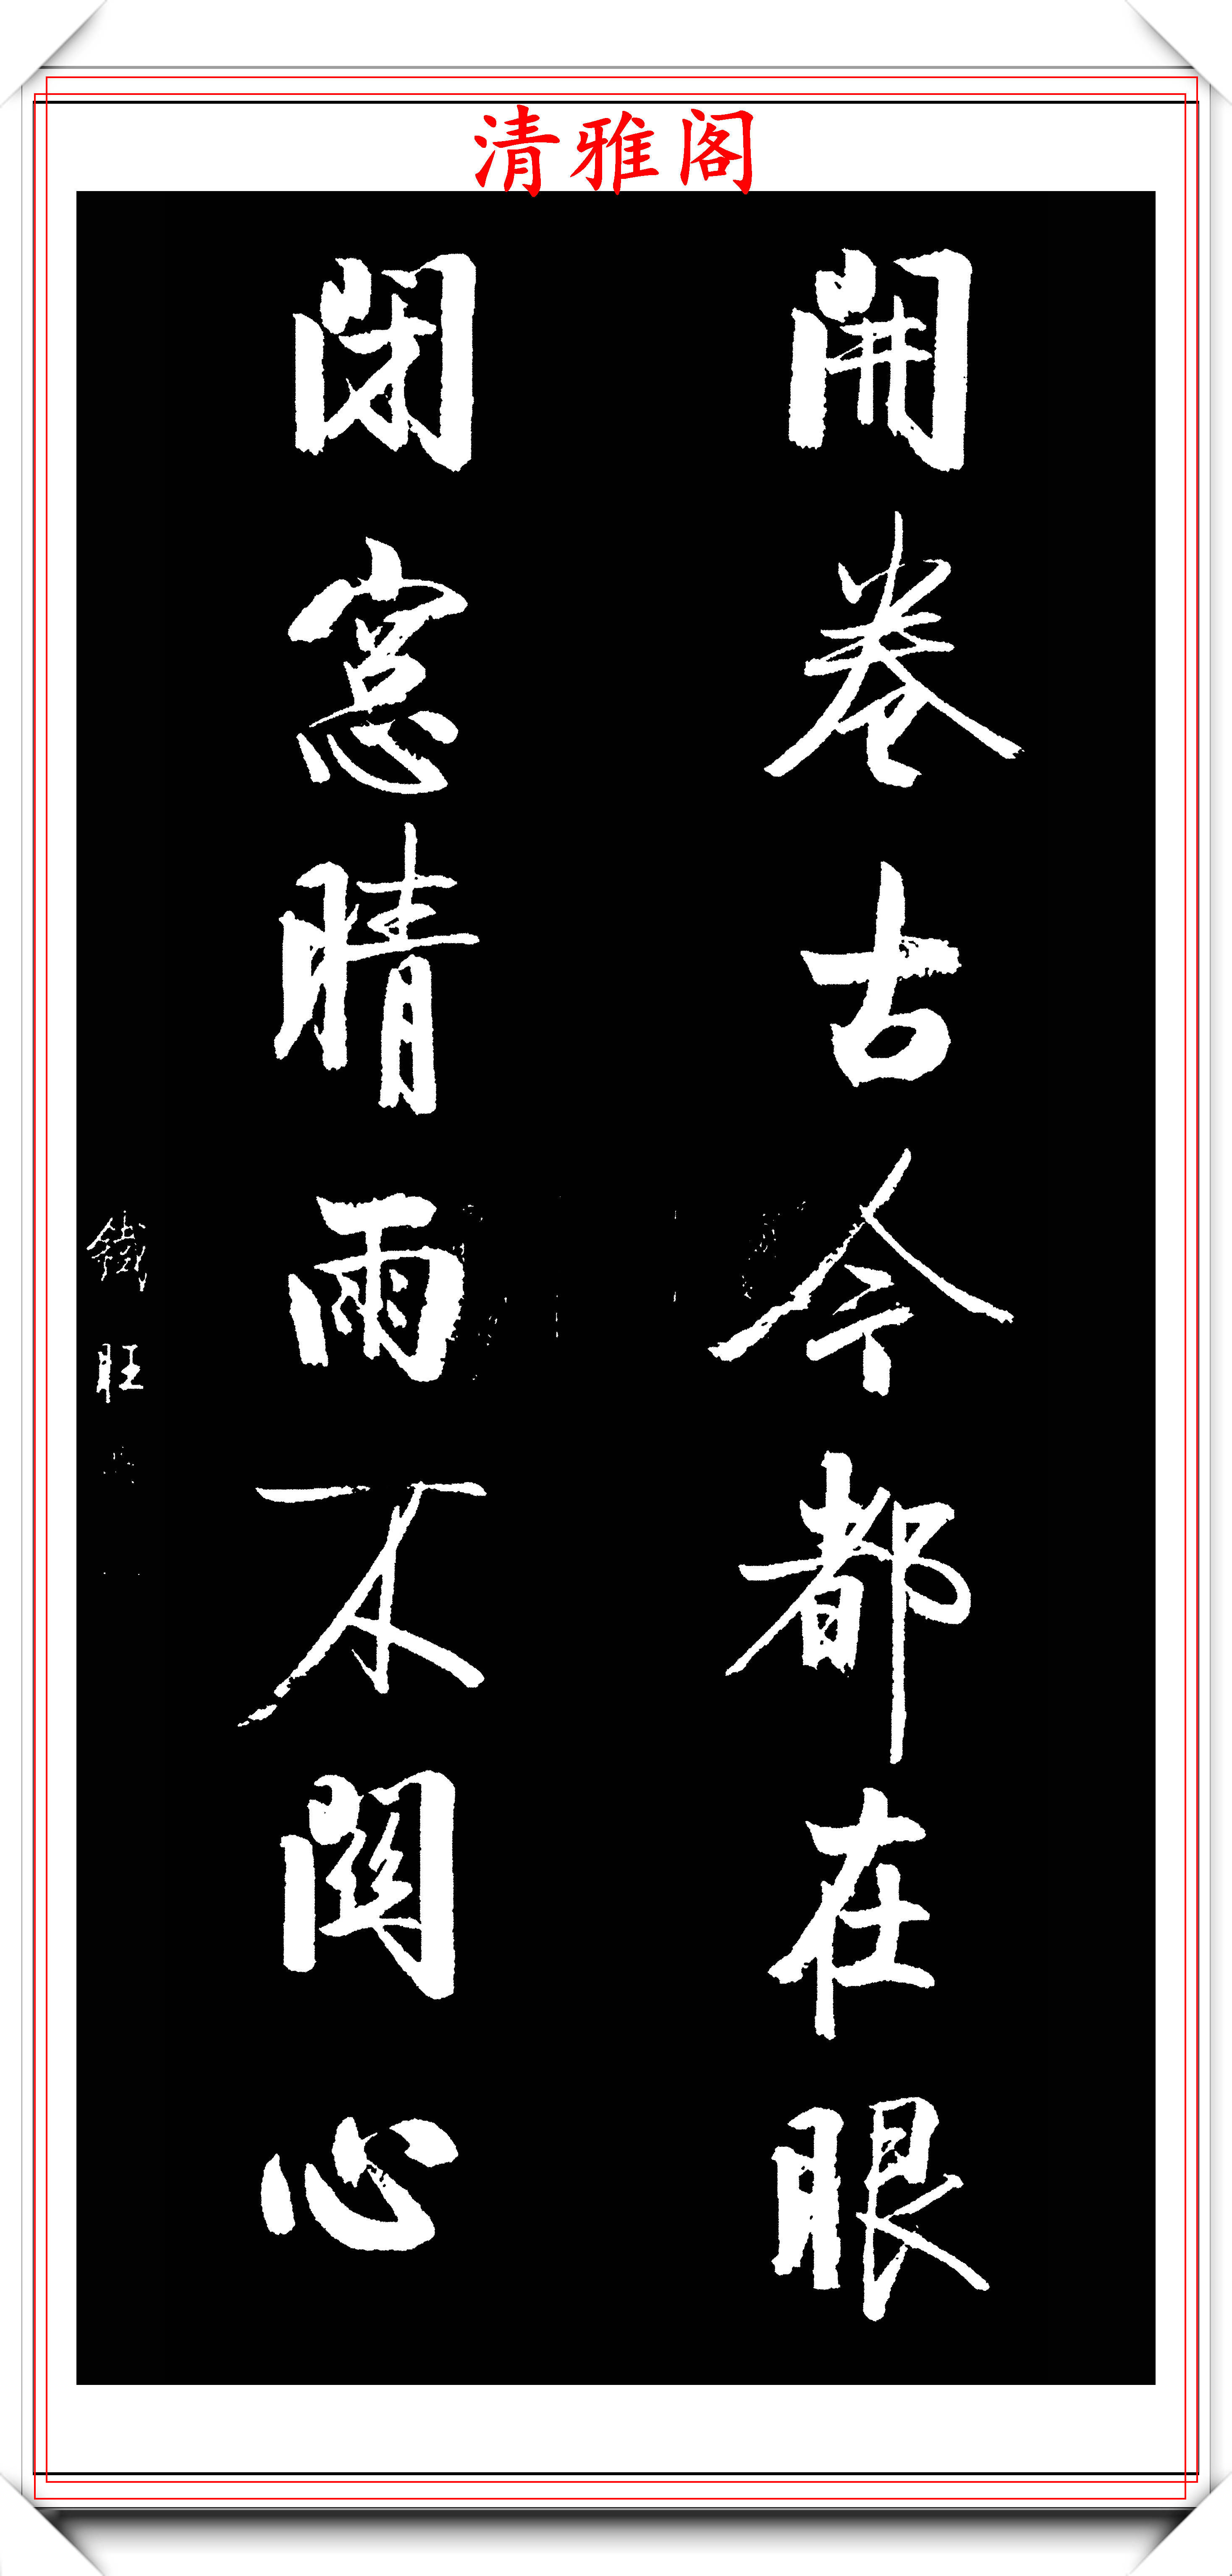 清雅阁
開卷古今都在眼
閉窓晴雨不関心
鐵旺